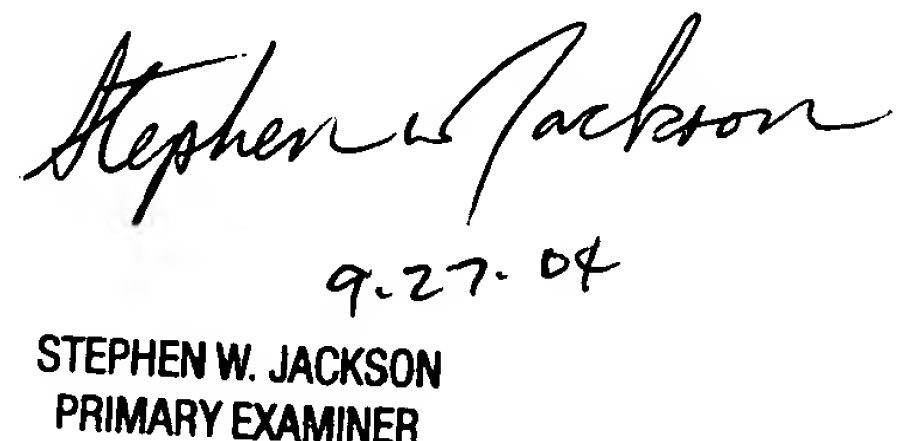 Stephen W Jackson
9.27.04
STEPHEN W. JACKSON
PRIMARY EXAMINER